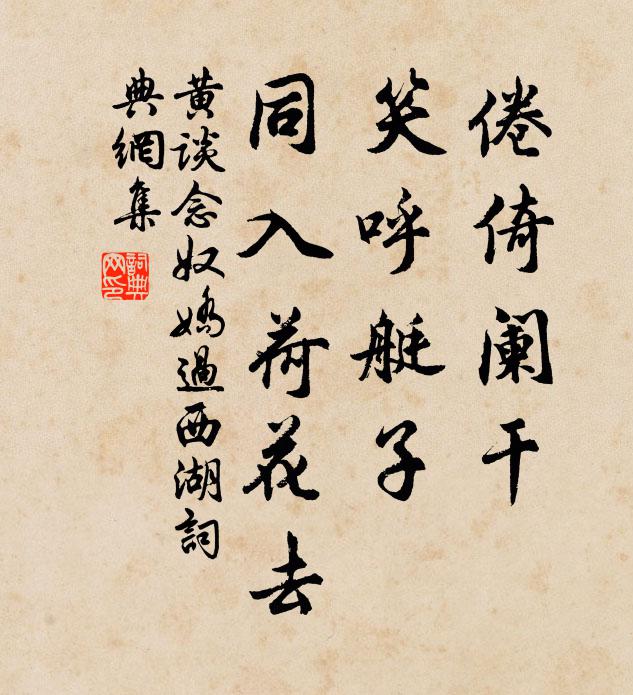 倦倚阑干
笑呼艇子
同入荷花去
黄谈念奴娇過西湖詞
典網集
詞典网印